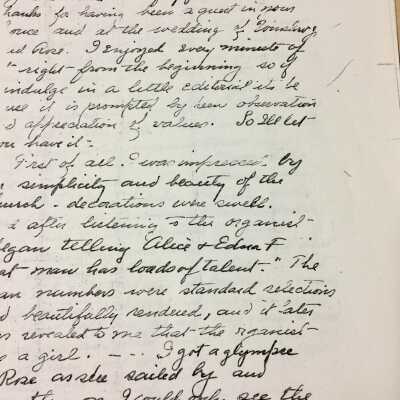 thanks for having been a guest in your
and at the wedding of
Rose. I enjoyed every minute of
right from the beginning so if
indulge in a little editorial its be
use it is prompted by keen observation
d appreciation of values. So I'll let
you have it:-
First of all. I was impressed by
simplicity and beauty of the
church - decorations were swell.
after listening to the organist-
began telling Alice & Edna F
at man has loads of talent." The
an numbers were standard selections
d beautifully rendered, and it later
as revealed to me that the organist-
a girl. - -. I got a glympse
Rose as she sailed by and
I could only see the